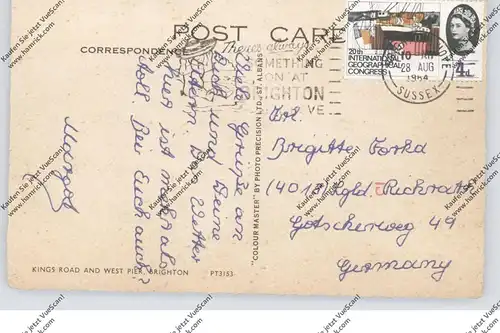 POST CARD
CORRESPONDENCE
There's always
SOMETHING
ON AT
BRIGHTON
20th
INTERNATIONAL
GEOGRAPHICAL
CONGRESS
4d
28 AUG
1964
SUSSEX
Viele Grüße an
Dich und Deine
Eltern. Das Wetter
hier ist mehr als
toll. Bei Euch auch?
Margot
"COLOUR MASTER" BY PHOTO PRECISION LTD., ST. ALBANS
Frl.
Brigitte
(4018)
Germany
KINGS ROAD AND WEST PIER, BRIGHTON
PT3153
Kaufen Sie jetzt VueScan!
www.hamrick.com